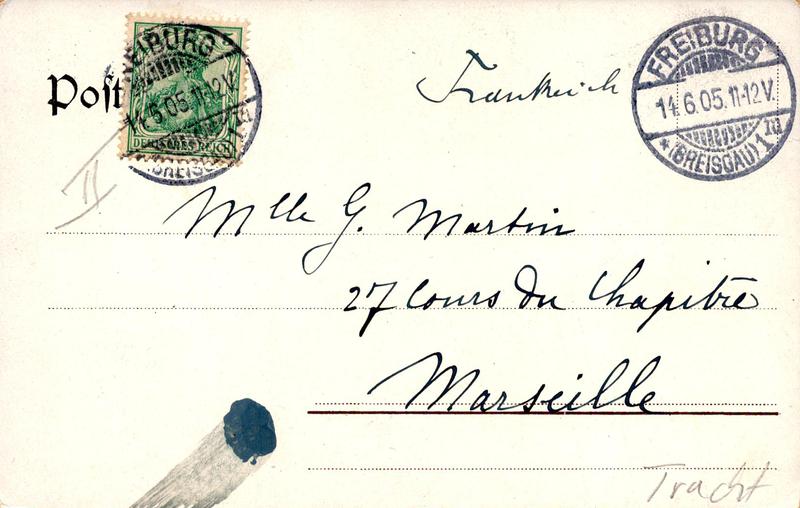 Post
FREIBURG
14.6.05.11-12V.
(BREISGAU)
DEUTSCHES REICH
5
Frankreich
FREIBURG
14.6.05.11-12V.
*(BREISGAU)1
II
Mlle G. Martin
27 Cours du Chapitre
Marseille
Tracht